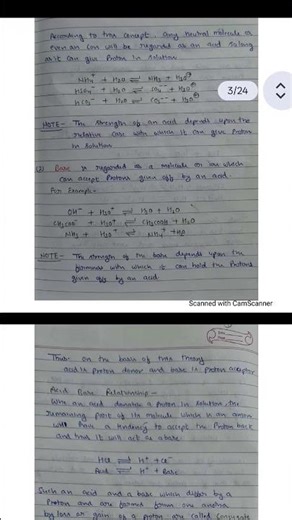 According to this concept, any neutral molecule or
even an ion will be regarded as an acid so long
as it can give proton in solution
NH4+ + H2O ⇌ NH3 + H3O+
HSO4- + H2O ⇌ SO4-- + H3O+
HCO3- + H2O ⇌ CO3-- + H3O+
3/24
NOTE- The strength of an acid depends upon the
relative ease with which it can give proton
in solution
(2) Base is regarded as a molecule or ion which
can accept protons given off by an acid.
For Example-
OH- + H3O+ ⇌ H2O + H2O
CH3COO- + H3O+ ⇌ CH3COOH + H2O
NH3 + H3O+ ⇌ NH4+ + H2O
NOTE- The strength of the base depends upon the
firmness with which it can hold the protons
given off by an acid.
Scanned with CamScanner
Thus on the basis of this theory
acid is proton donor and base is proton acceptor
Acid Base Relationship-
When an acid donates a proton in solution, the
remaining part of its molecule which is an anion
will have a tendency to accept the proton back
and thus it will act as a base
HCl ⇌ H+ + Cl-
Acid ⇌ H+ + Base
Such an acid and a base which differ by a
proton and are formed from one another
by loss or gain of a proton are called conjugate